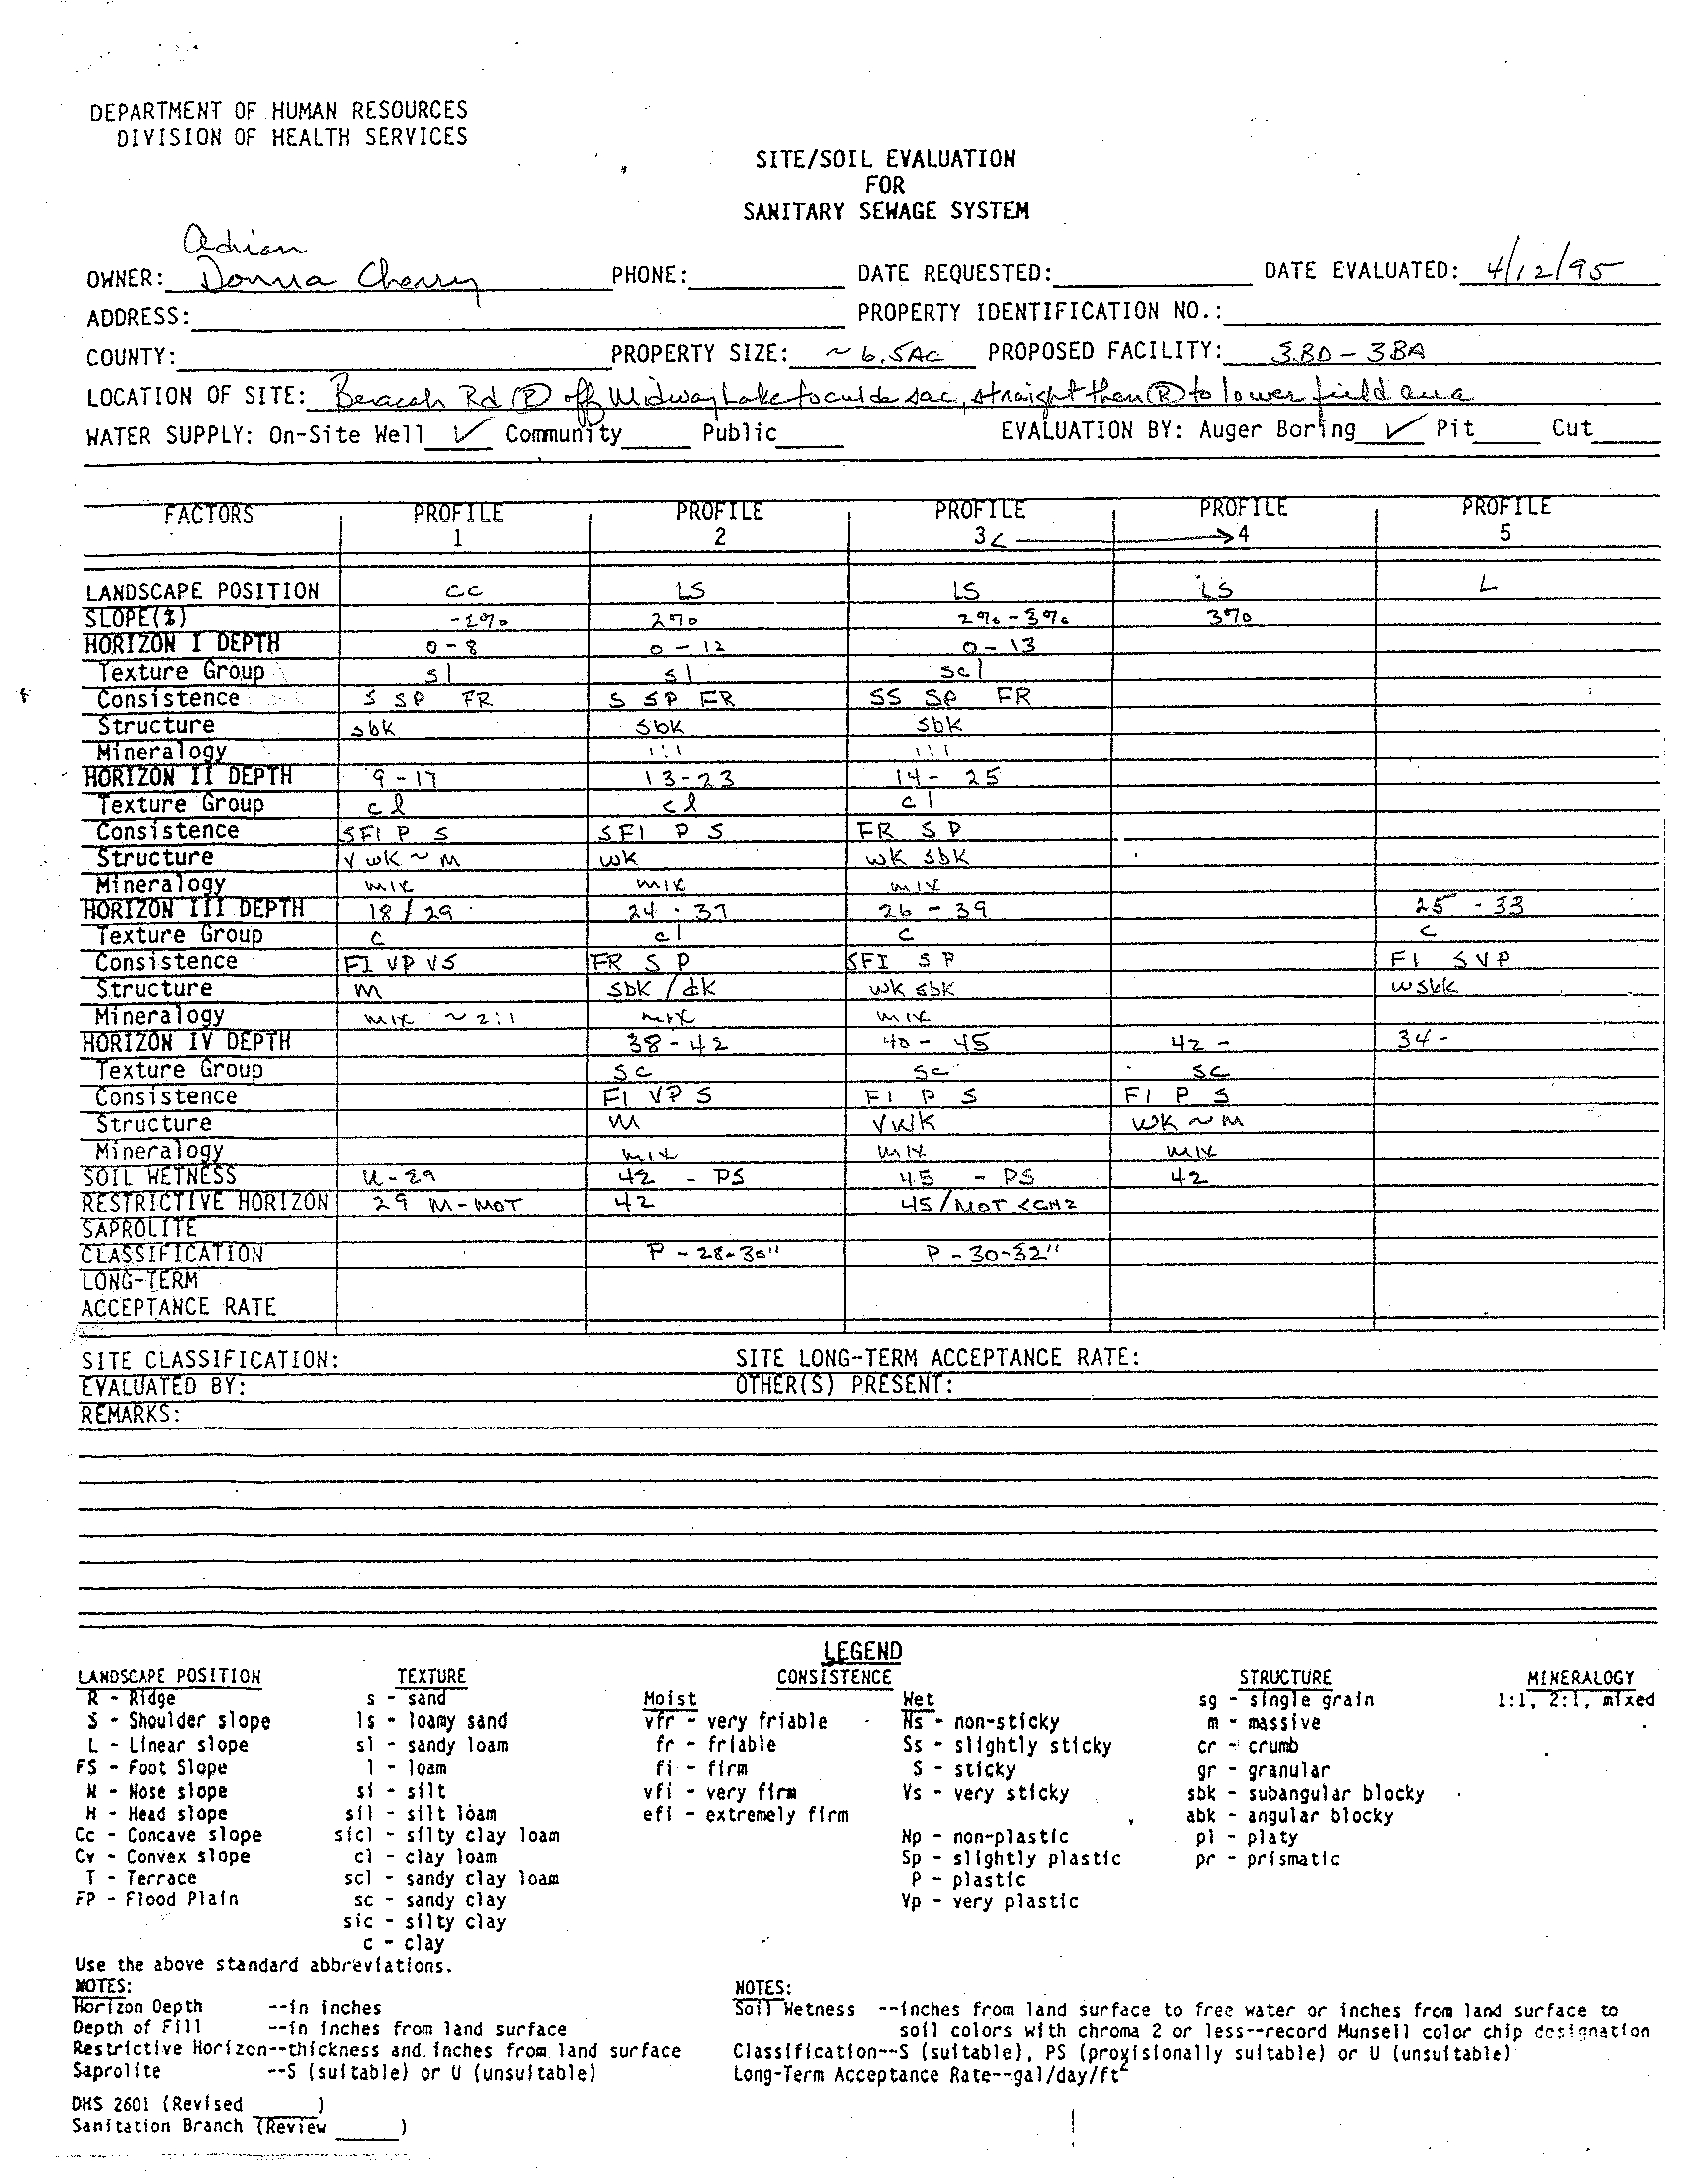 DEPARTMENT OF HUMAN RESOURCES
DIVISION OF HEALTH SERVICES
SITE/SOIL EVALUATION
FOR
SANITARY SEWAGE SYSTEM
Adrian
OWNER: Donna Cherry PHONE: DATE REQUESTED: DATE EVALUATED: 4/12/95
ADDRESS: PROPERTY IDENTIFICATION NO.:
COUNTY: PROPERTY SIZE: ~ 6.5AC PROPOSED FACILITY: 3BD - 3BA
LOCATION OF SITE: Rd (R) off Midway Lake to culde sac, straight then (R) to lower field area
WATER SUPPLY: On-Site Well ✓ Community Public EVALUATION BY: Auger Boring ✓ Pit Cut
FACTORS PROFILE PROFILE PROFILE PROFILE PROFILE
1 2 3 <———> 4 5
LANDSCAPE POSITION CC LS LS LS L
SLOPE(%) 2% 2%-3% 3%
HORIZON I DEPTH 0-8 0-12 0-13
Texture Group sl sl scl
Consistence S SP FR S SP FR SS SP FR
Structure sbk sbk sbk
Mineralogy 1:1 1:1
HORIZON II DEPTH 9-17 13-23 14-25
Texture Group cl cl cl
Consistence SFI P S SFI P S FR S P
Structure V wk ~ M wk wk sbk
Mineralogy mix mix mix
HORIZON III DEPTH 18/29 24-37 26-39 25-33
Texture Group c cl c c
Consistence FI VP VS FR S P SFI S P FI S VP
Structure m sbk / wk sbk wsbk
Mineralogy mix ~ 2:1 mix mix
HORIZON IV DEPTH 38-42 40-45 42- 34-
Texture Group sc sc sc
Consistence FI VP S FI P S FI P S
Structure M VWK WK ~ M
Mineralogy mix mix mix
SOIL WETNESS U-29 42 - PS 45 - PS 42
RESTRICTIVE HORIZON 29 M-MOT 42 45/MOT
SAPROLITE
CLASSIFICATION P - 28-30" P - 30-32"
LONG-TERM
ACCEPTANCE RATE
SITE CLASSIFICATION: SITE LONG-TERM ACCEPTANCE RATE:
EVALUATED BY: OTHER(S) PRESENT:
REMARKS:
LEGEND
LANDSCAPE POSITION TEXTURE CONSISTENCE STRUCTURE MINERALOGY
R - Ridge s - sand Moist Wet sg - single grain 1:1, 2:1, mixed
S - Shoulder slope ls - loamy sand vfr - very friable Ns - non-sticky m - massive
L - Linear slope sl - sandy loam fr - friable Ss - slightly sticky cr - crumb
FS - Foot Slope l - loam fi - firm S - sticky gr - granular
N - Nose slope si - silt vfi - very firm Vs - very sticky sbk - subangular blocky
H - Head slope sil - silt loam efi - extremely firm abk - angular blocky
Cc - Concave slope sicl - silty clay loam Np - non-plastic pl - platy
Cv - Convex slope cl - clay loam Sp - slightly plastic pr - prismatic
T - Terrace scl - sandy clay loam P - plastic
FP - Flood Plain sc - sandy clay Vp - very plastic
sic - silty clay
c - clay
Use the above standard abbreviations.
NOTES: NOTES:
Horizon Depth --in inches Soil Wetness --inches from land surface to free water or inches from land surface to
Depth of Fill --in inches from land surface soil colors with chroma 2 or less--record Munsell color chip designation
Restrictive Horizon--thickness and inches from land surface Classification--S (suitable), PS (provisionally suitable) or U (unsuitable)
Saprolite --S (suitable) or U (unsuitable) Long-Term Acceptance Rate--gal/day/ft2
DHS 2601 (Revised )
Sanitation Branch (Review )